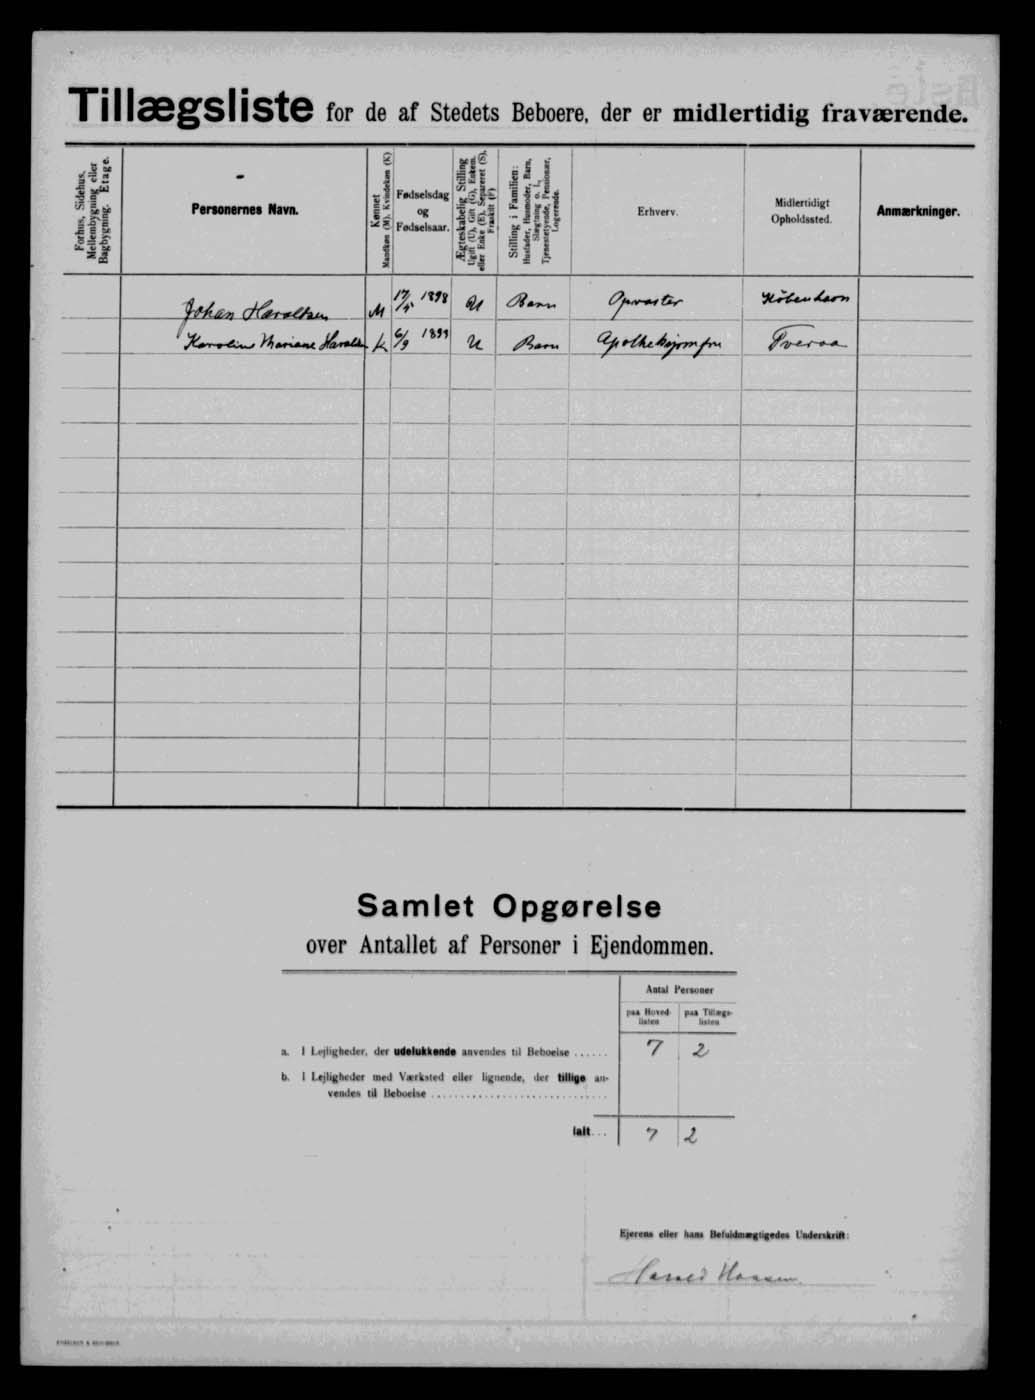 Tillægsliste for de af Stedets Beboere, der er midlertidig fraværende.
Forhus, Sidehus, Mellembygning eller Bagbygning. Etage.
Personernes Navn.
Kønnet Mandkøn (M), Kvindekøn (K)
Fødselsdag og Fødselsaar.
Ægteskabelig Stilling Ugift (U), Gift (G), Enkem. eller Enke (E), Separeret (S), Fraskilt (F)
Stilling i Familien: Husfader, Husmoder, Barn, Slægtning o. l., Tjenestetyende, Pensionær, Logerende.
Erhverv.
Midlertidigt Opholdssted.
Anmærkninger.
Johan Haraldsen M 17/5 1898 U Barn Opvarter København
Karoline Mariane Haralds K 6/9 1899 U Barn Apothekjomfru Tveraa
Samlet Opgørelse
over Antallet af Personer i Ejendommen.
Antal Personer
paa Hoved-listen
paa Tillægs-listen
a. I Lejligheder, der udelukkende anvendes til Beboelse ...... 7 2
b. I Lejligheder med Værksted eller lignende, der tillige an-
vendes til Beboelse
Ialt... 7 2
Ejerens eller hans Befuldmægtigedes Underskrift:
Harald Hansen